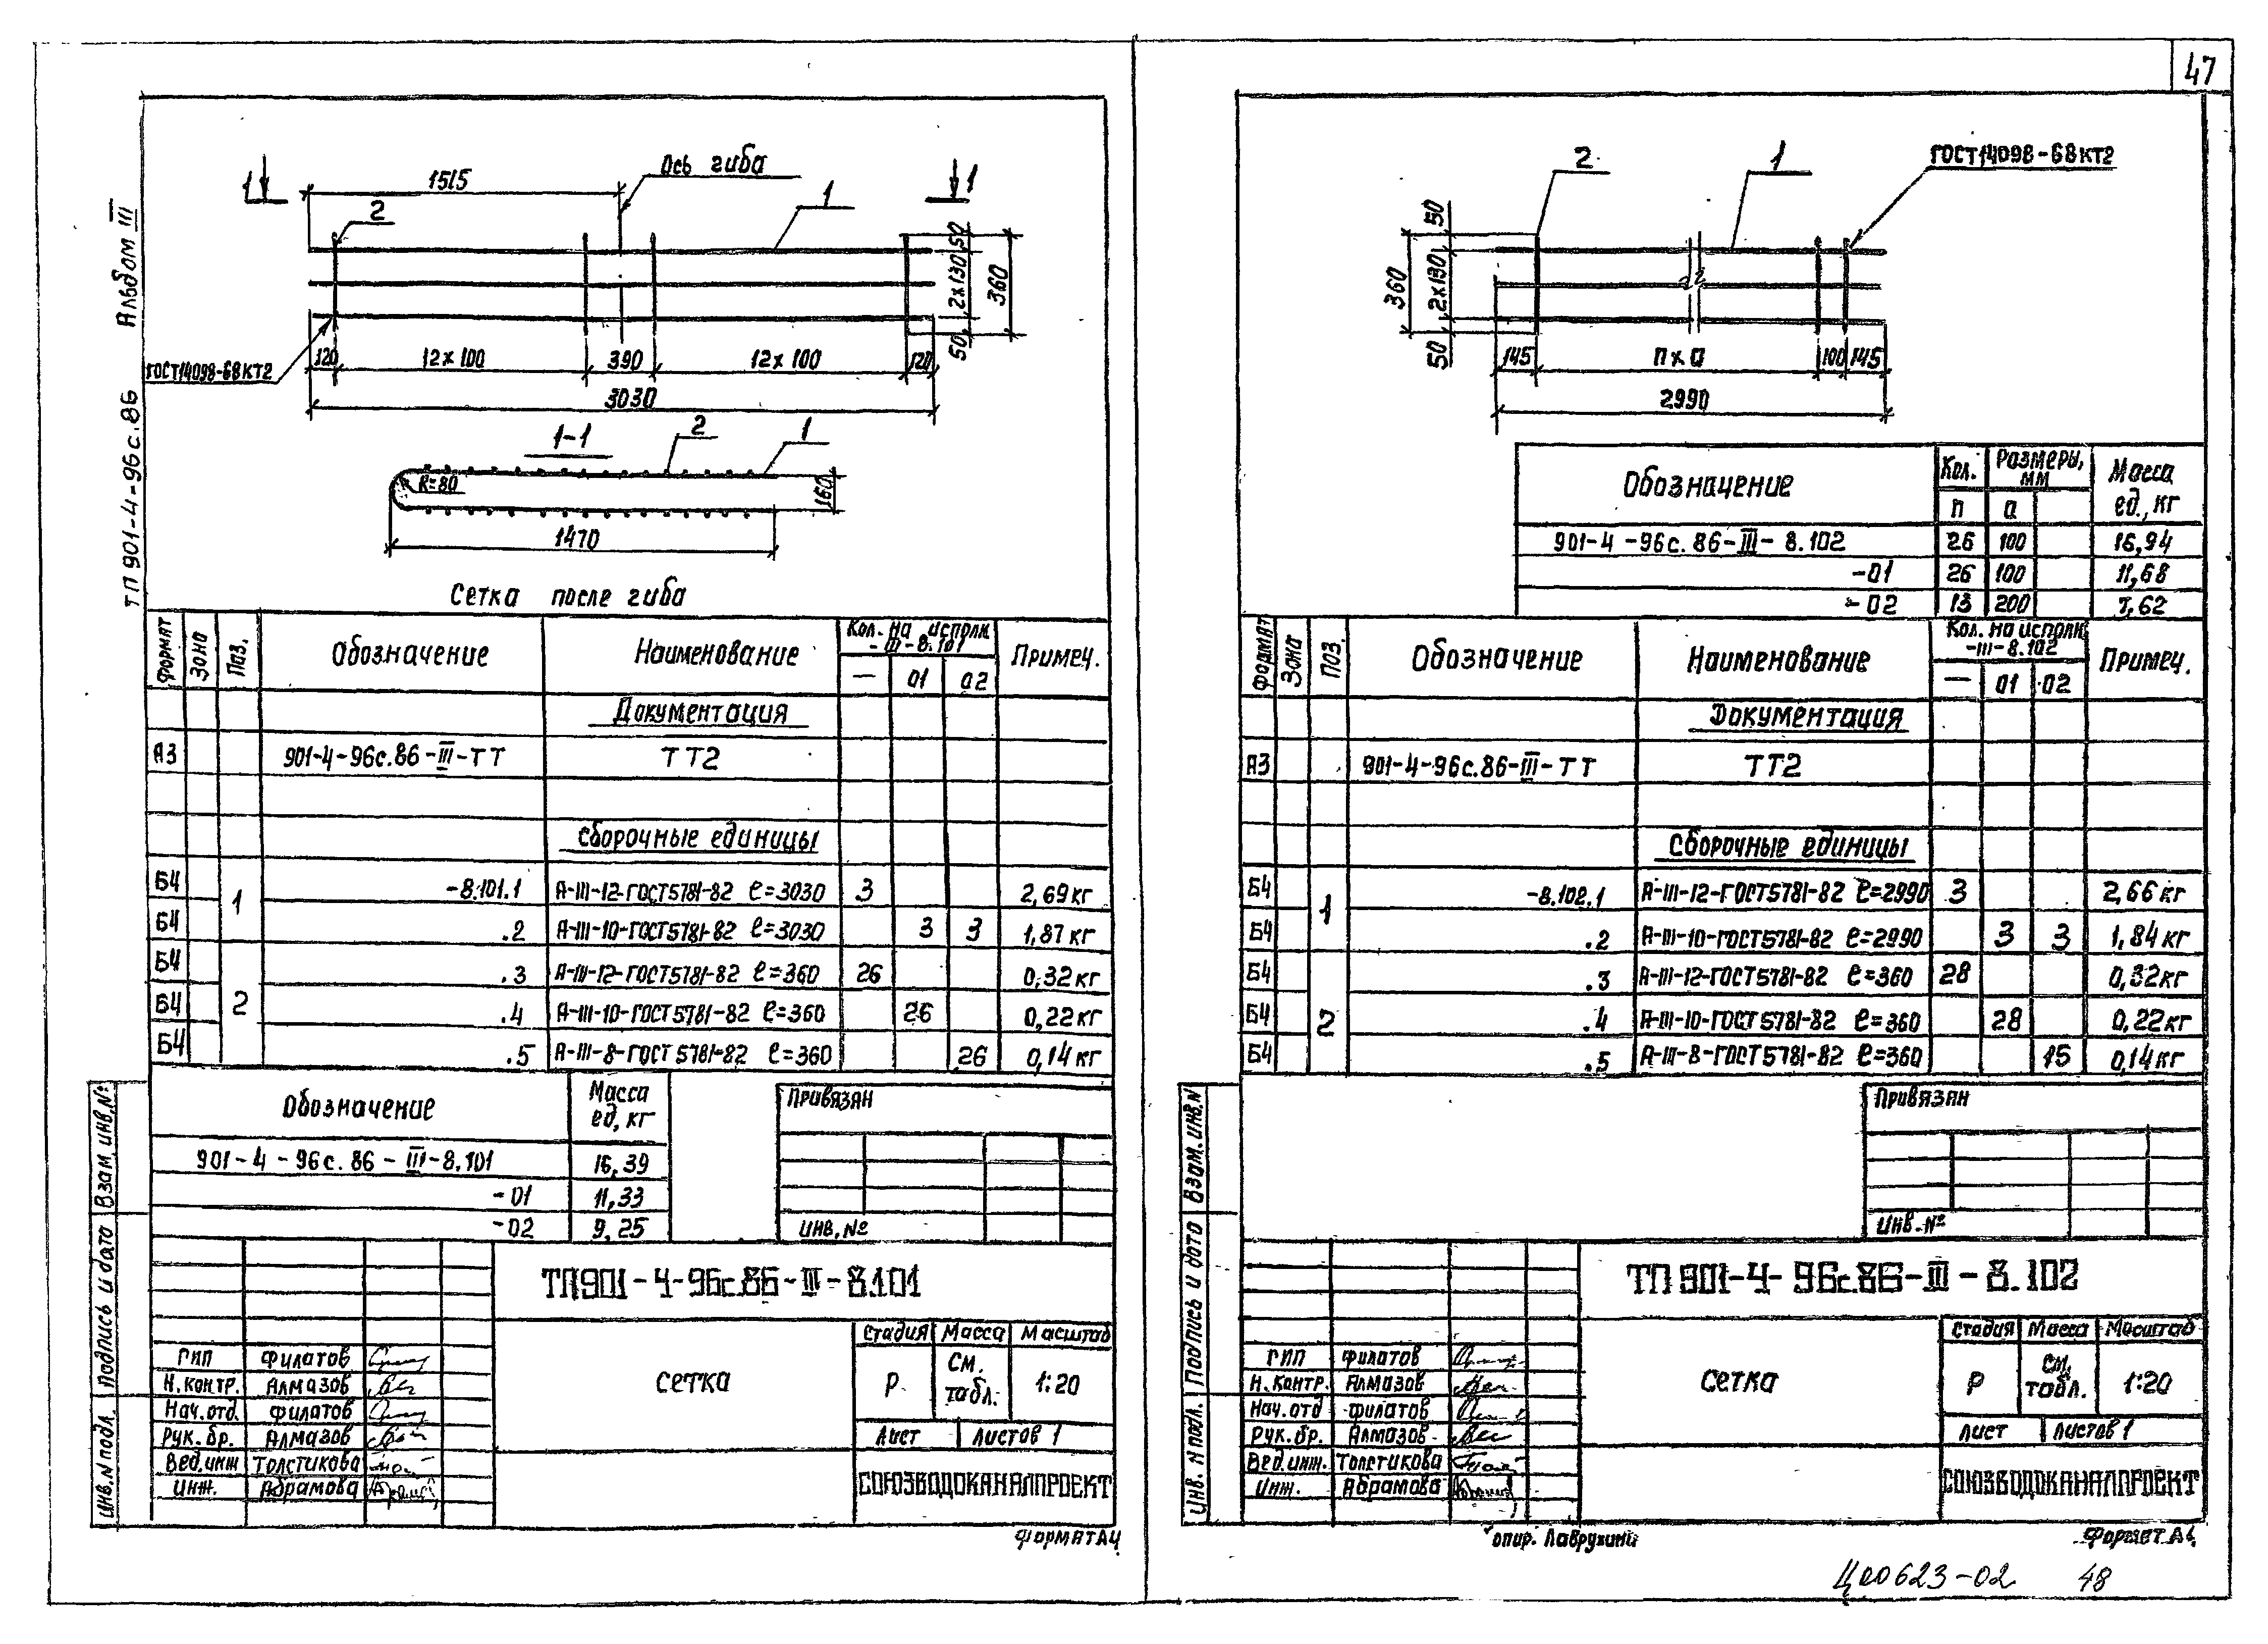 47
ТП 901-4-96с.86 Альбом III
1 1515 Ось гиба 1
2 1
50
2х130
360
50
ГОСТ 14098-68 КТ2
120 12х100 390 12х100 120
3030
1-1 2 1
R=80 160
1470
Сетка после гиба
Формат Зона Поз. Обозначение Наименование Кол. на исполн. -III-8.101 Примеч.
— 01 02
Документация
А3 901-4-96с.86-III-ТТ ТТ2
Сборочные единицы
Б4 1 -8.101.1 А-III-12-ГОСТ5781-82 ℓ=3030 3 2,69кг
Б4 .2 А-III-10-ГОСТ5781-82 ℓ=3030 3 3 1,87кг
Б4 2 .3 А-III-12-ГОСТ5781-82 ℓ=360 26 0,32кг
Б4 .4 А-III-10-ГОСТ5781-82 ℓ=360 26 0,22кг
Б4 .5 А-III-8-ГОСТ5781-82 ℓ=360 26 0,14кг
Обозначение Масса ед, кг
901-4-96с.86-III-8.101 16,39
-01 11,33
-02 9,25
Привязан
Инв. №
ТП901-4-96с.86-III-8.101
ГИП Филатов
Н.контр. Алмазов
Нач.отд. Филатов
Рук.бр. Алмазов
Вед.инж Толстикова
Инж. Абрамова
Сетка
Стадия Масса Масштаб
Р См. табл. 1:20
Лист Листов 1
СОЮЗВОДОКАНАЛПРОЕКТ
Инв.N подл. Подпись и дата Взам.инв.№
Формат А4
2 1 ГОСТ14098-68 КТ2
50
360 2х130
50
145 n х a 100 145
2990
Обозначение Кол. Размеры, мм Масса ед., кг
n a
901-4-96с.86-III-8.102 26 100 16,94
-01 26 100 11,68
-02 13 200 7,62
Формат Зона Поз. Обозначение Наименование Кол. на исполн -III-8.102 Примеч.
— 01 02
Документация
А3 901-4-96с.86-III-ТТ ТТ2
Сборочные единицы
Б4 1 -8.102.1 А-III-12-ГОСТ5781-82 ℓ=2990 3 2,66кг
Б4 .2 А-III-10-ГОСТ5781-82 ℓ=2990 3 3 1,84кг
Б4 2 .3 А-III-12-ГОСТ5781-82 ℓ=360 28 0,32кг
Б4 .4 А-III-10-ГОСТ5781-82 ℓ=360 28 0,22кг
Б4 .5 А-III-8-ГОСТ5781-82 ℓ=360 15 0,14кг
Привязан
Инв. №
ТП 901-4-96с.86-III-8.102
ГИП Филатов
Н.контр. Алмазов
Нач.отд Филатов
Рук.бр. Алмазов
Вед.инж. Толстикова
Инж. Абрамова
Сетка
Стадия Масса Масштаб
Р См. табл. 1:20
Лист Листов 1
СОЮЗВОДОКАНАЛПРОЕКТ
Инв. N подл. Подпись и дата Взам.инв.N
Формат А4
Ц00623-02 48